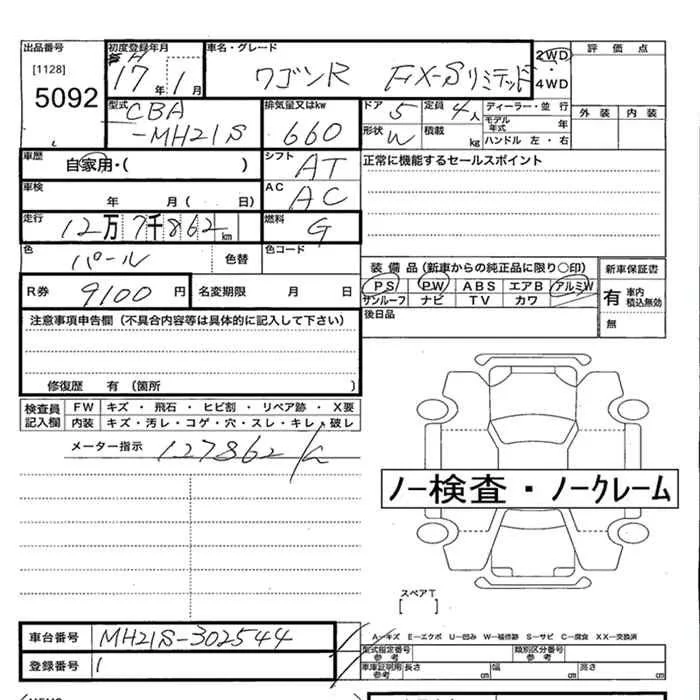 出品番号
[1128]
5092
初度登録年月
H
17 年 1 月
車名・グレード
ワゴンR FX-Sリミテッド
2WD
・
4WD
評価点
外装 内装
型式
CBA
-MH21S
排気量又はkw
660
ドア 5
定員 4人
形状 W
積載 kg
ディーラー・並行
モデル年式 年
ハンドル 左・右
車歴
自家用・( )
シフト
AT
正常に機能するセールスポイント
車検
年 月( 日)
AC
AC
走行
12万7千862km
燃料
G
色
パール
色替
色コード
装備品(新車からの純正品に限り○印)
PS PW ABS エアB アルミW
サンルーフ ナビ TV カワ
新車保証書
有 車内積込無効
無
R券 9100 円
名変期限 月 日
後日品
注意事項申告欄(不具合内容等は具体的に記入して下さい)
修復歴 有(箇所 )
検査員記入欄
FW キズ・飛石・ヒビ割・リペア跡・X要
内装 キズ・汚レ・コゲ・穴・スレ・キレ・破レ
メーター指示 127862
ノー検査・ノークレーム
スペアT
[ ]
車台番号 MH21S-302544
登録番号
A−キズ E−エクボ U−凹み W−補修跡 S−サビ C−腐食 XX−交換済
型式指定番号
参考
類別区分番号
参考
車庫証明用
参考
長さ cm 幅 cm 高さ cm
MEMO